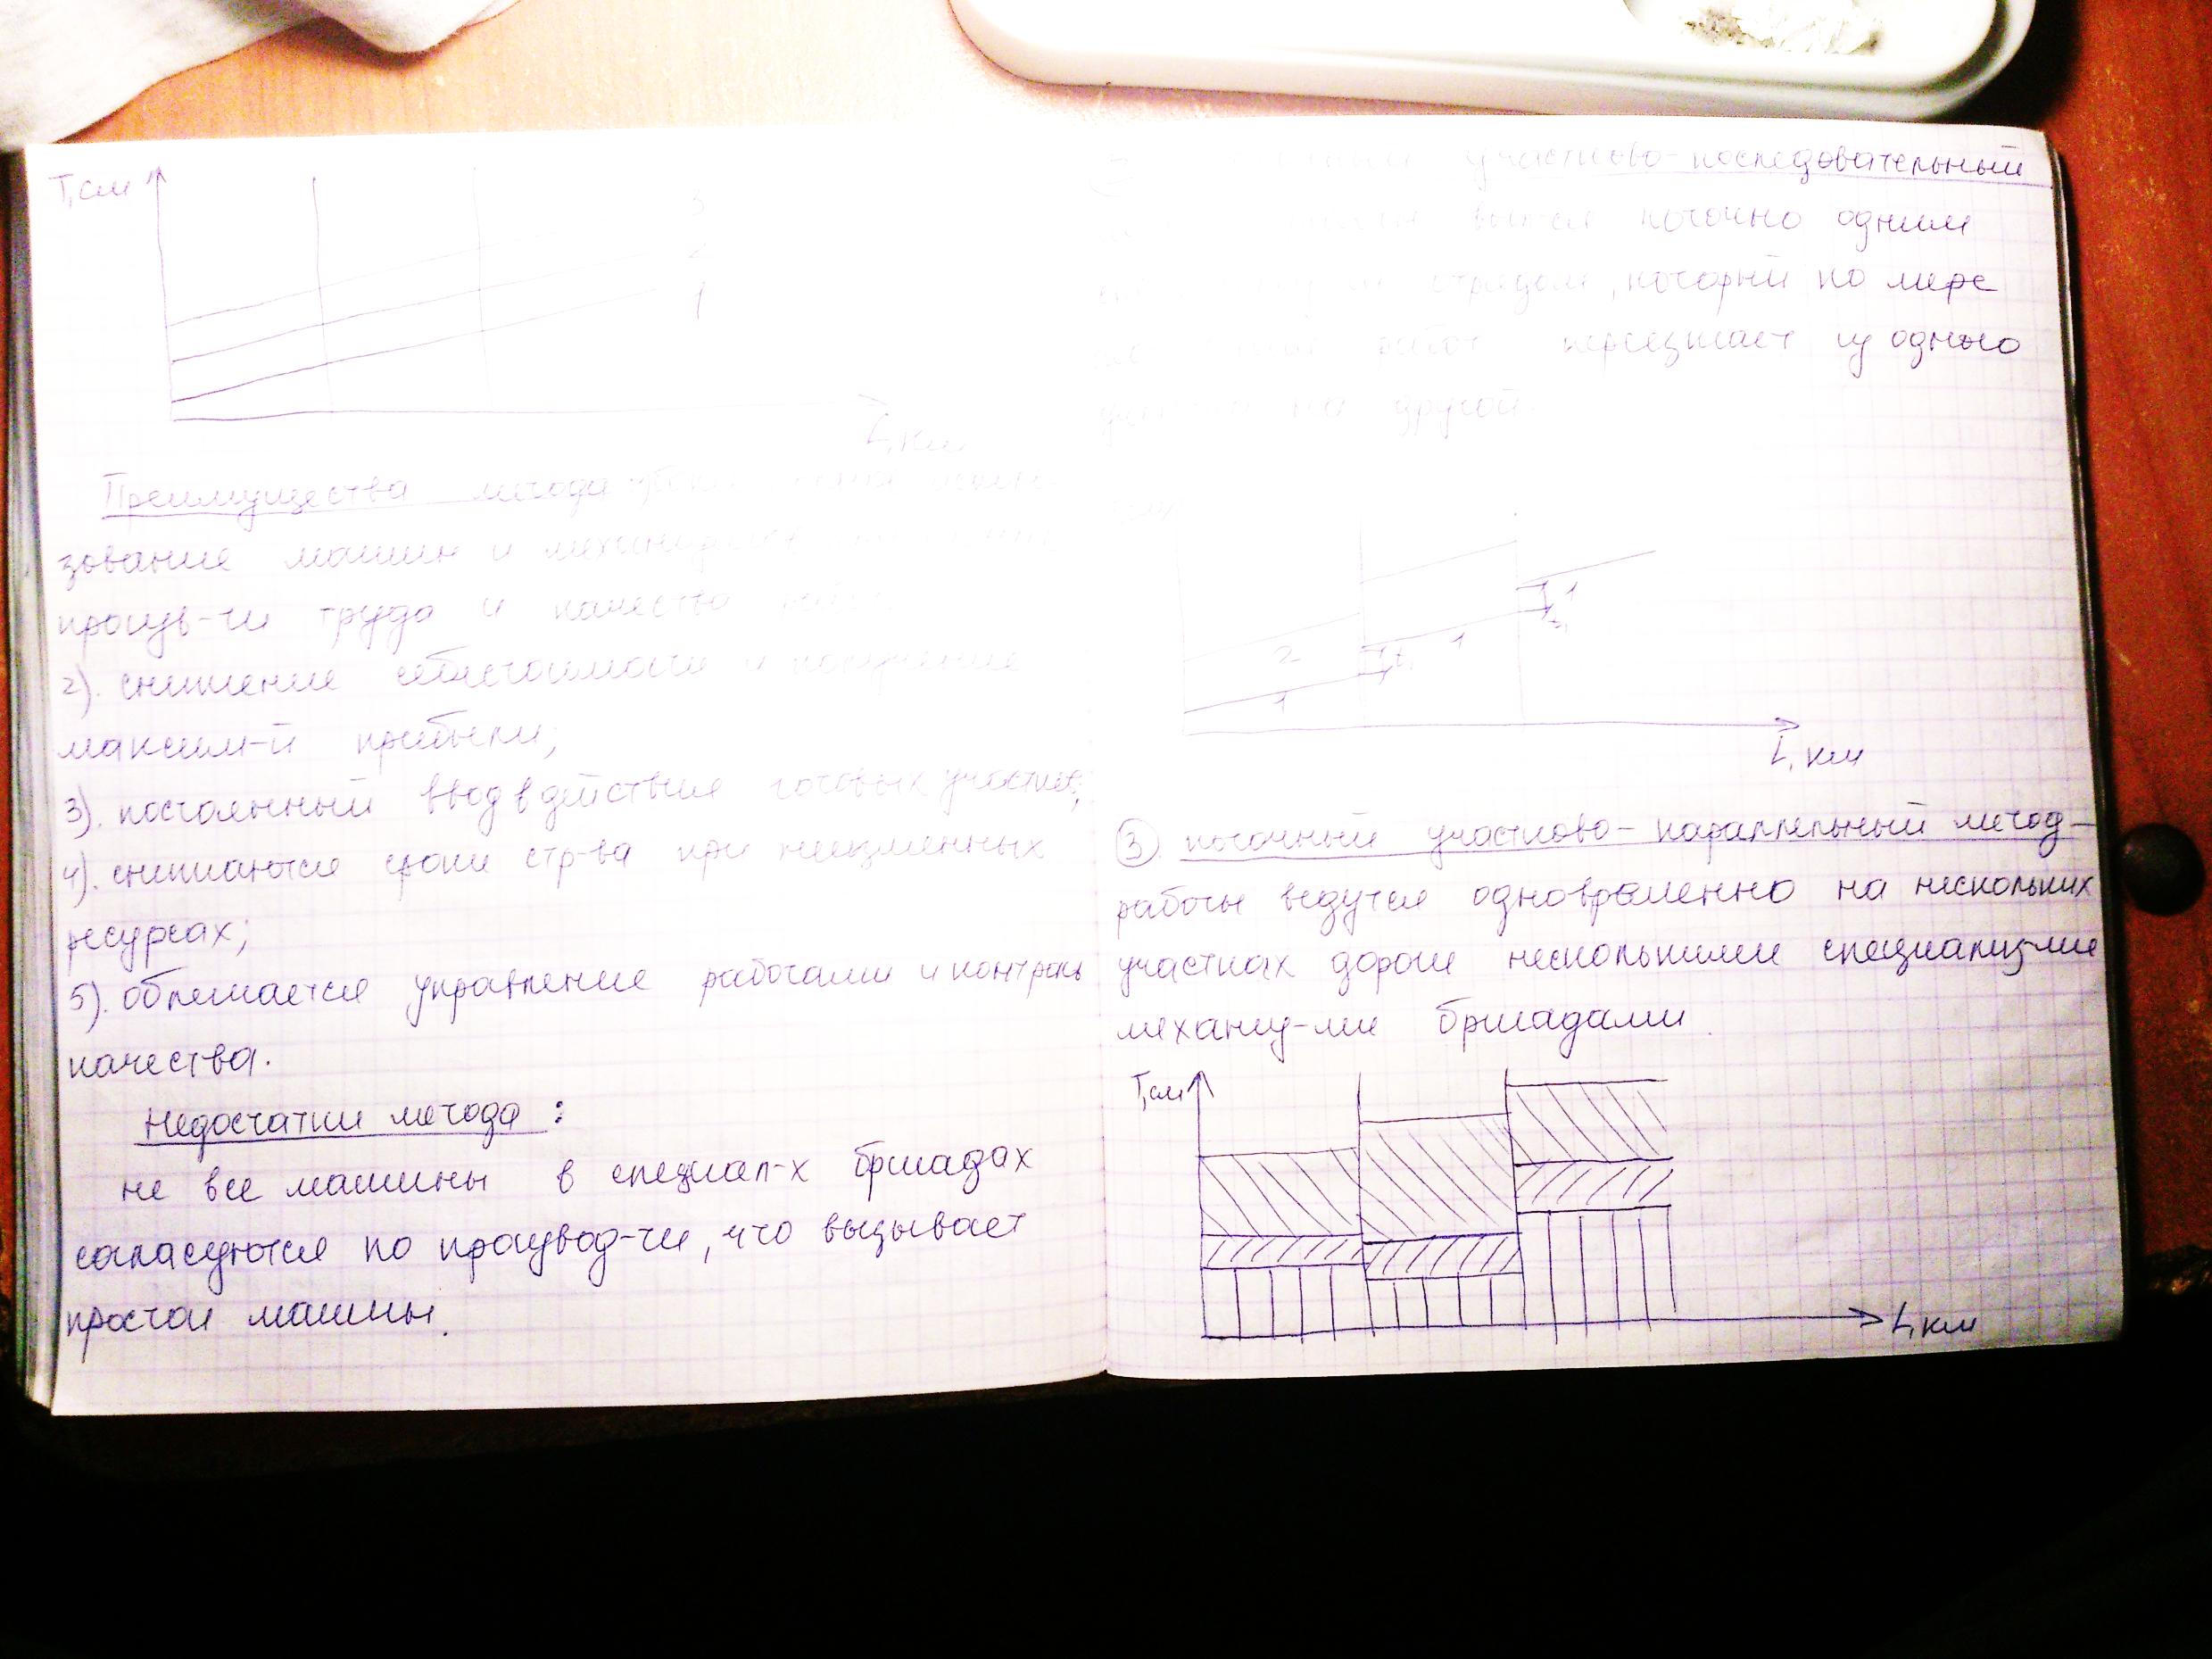 Т,см
3
2
1
L, км
Преимущества метода
зование машин и
произв-ти труда и качества
2). снижение себестоимости и получение
максим-й прибыли;
3). постоянный ввод в действие готовых участков;
4). снижаются сроки стр-ва при неизменных
ресурсах;
5). облегчается управление работами и контроль
качества.
Недостатки метода:
не все машины в специал-х бригадах
согласуются по производ-ти, что вызывает
простои машины.
участково-последовательный
поточно одним
отрядом, который по мере
работ переезжает из одного
на другой.
2
1
t₁
1
t₁
1
L, км
3). поточный участково-параллельный метод-
работы ведутся одновременно на нескольких
участках дороги несколькими специализ-ми
механиз-ми бригадами.
Т,см
L, км